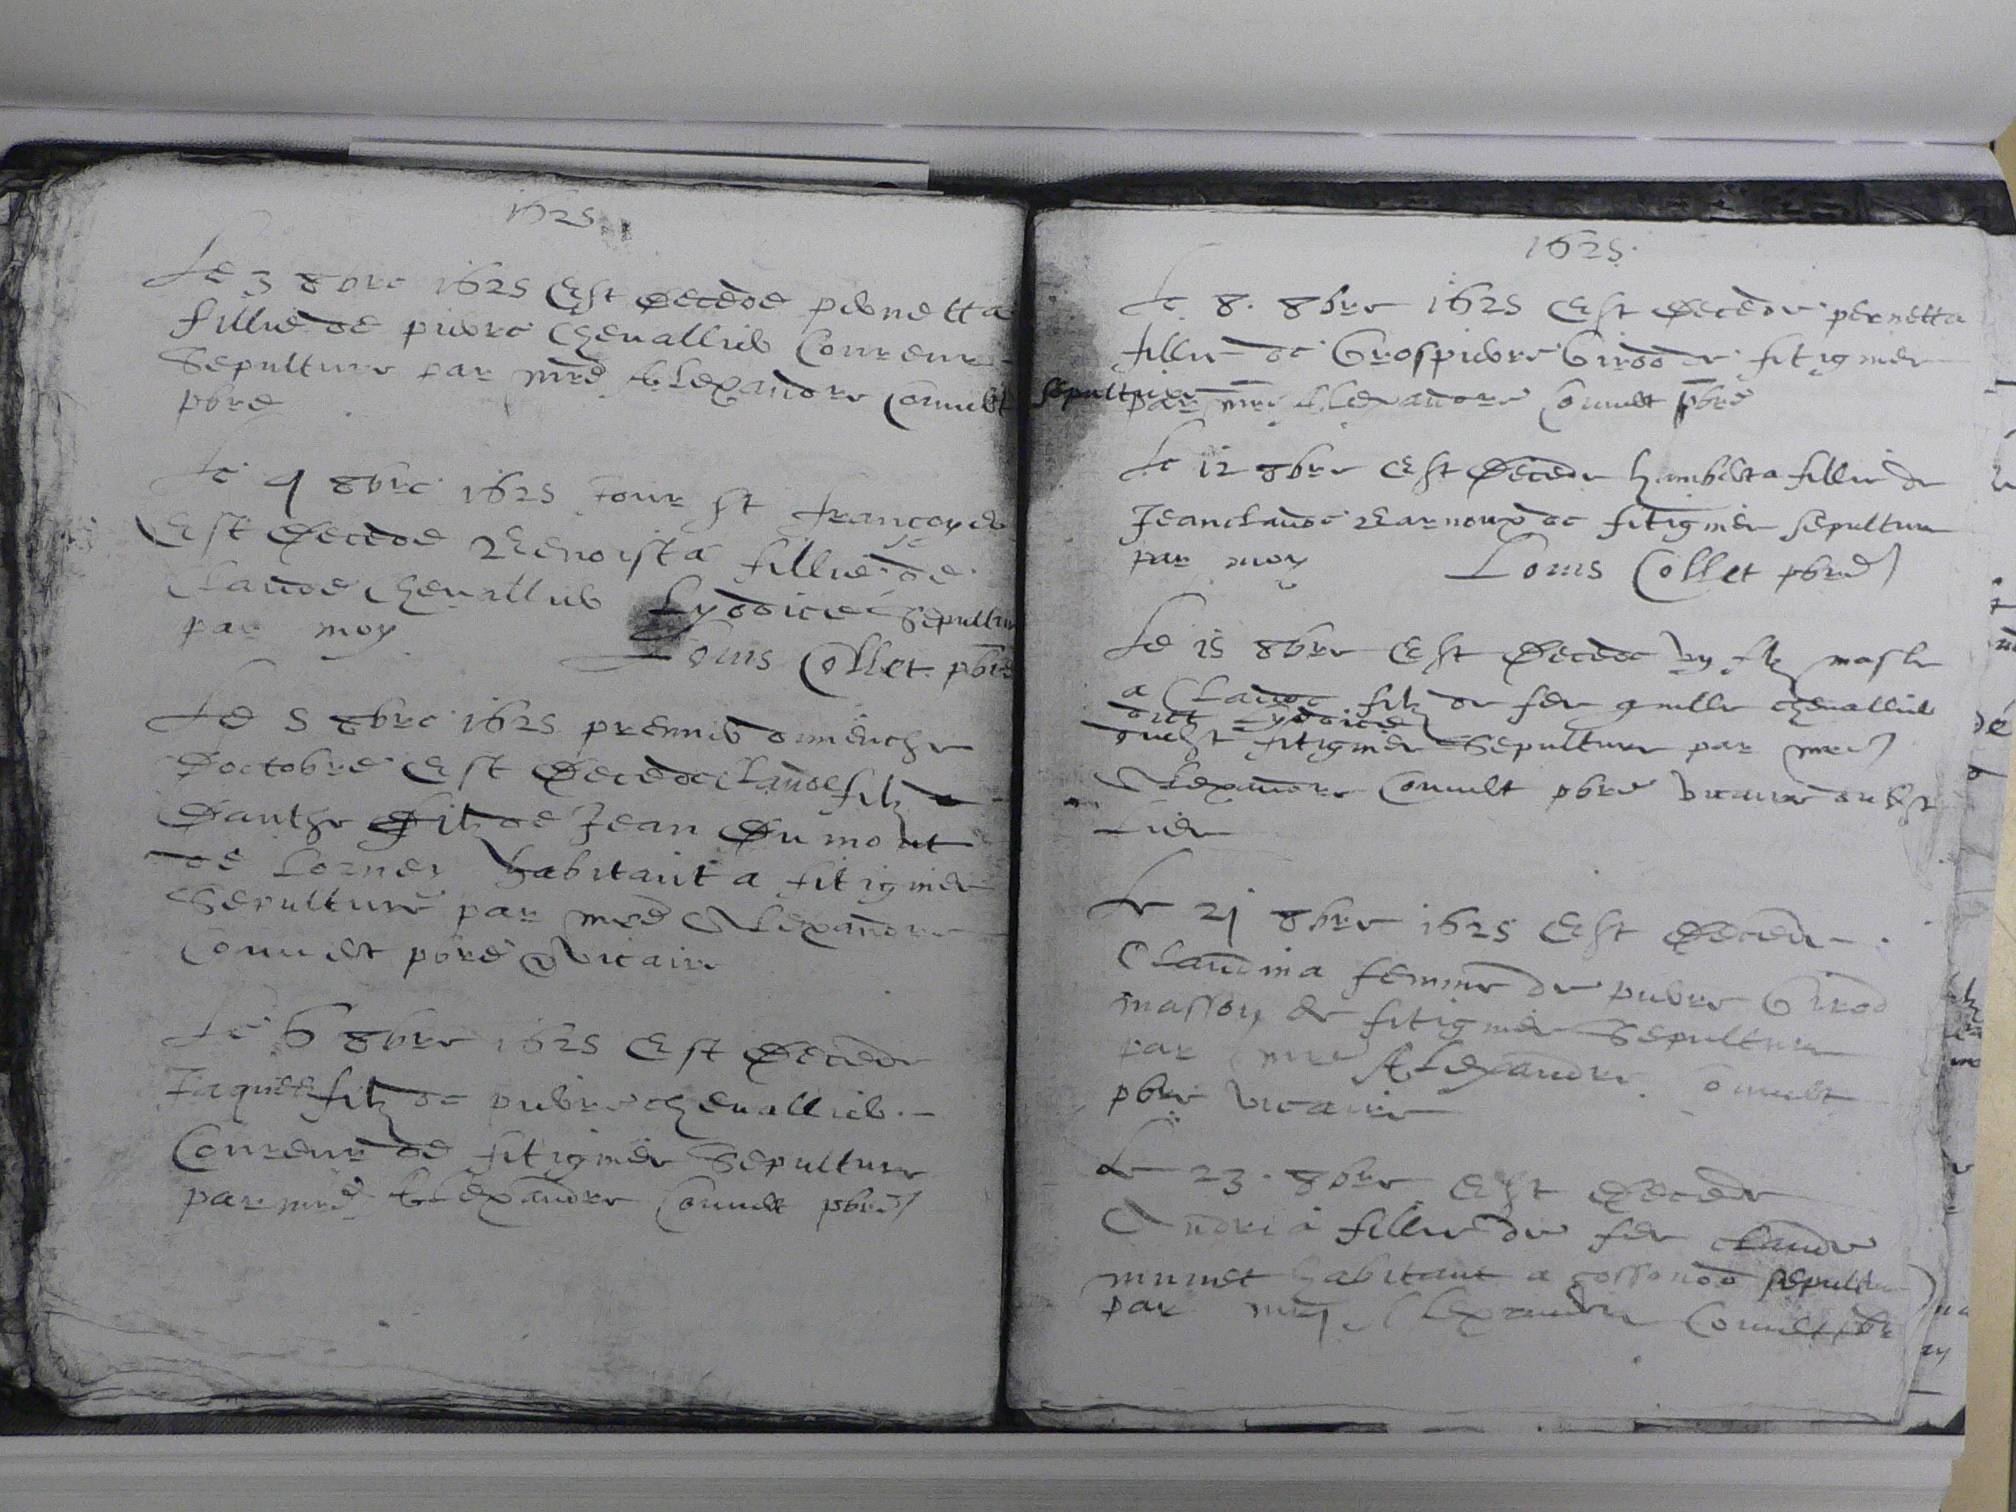 1625
Le 3 8bre 1625 Est decede pernetta
fillie de pierre Chevallier Coureur
Sepulture par mre Alexandre Convert
pbre
Le 4 8bre 1625 Jour st francoys
Est decede Benoista fillie de
Claude Chevallier Lyodice Sepulture
par moy
Louis Collet pbre
Le 5 8bre 1625 premier dimenche
doctobre Est decede Claude filz
dauthe de Jean du mont
de habitant a fitignier
Sepulture par mre Alexandre
Convert pbre vicaire
Le 6 8bre 1625 Est decede
Jaques filz de pierre chevallier
Coureur de fitignier Sepulture
par mre Alexandre Convert pbre
1625
Le 8. 8bre 1625 Est decede pernetta
fillie de Grospierre Girod de fitignier
sepulture par mre Alexandre Convert pbre
Le 12 8bre Est decede humberta fillie de
Jeanclaude Barnoux de fitignier sepulture
par moy Louis Collet pbre
Le 15 8bre Est decede ung filz masle
a Claude filz de feu chevallier
dict Lyodice
dudict fitignier Sepulture par mre
Alexandre Convert pbre vicaire
Lieu
Le 21 8bre 1625 Est decede
Claudina femme de pierre Girod
masson de fitignier Sepulture
par mre Alexandre Convert
pbre vicaire
Le 23. 8bre Est decede
Andria fillie de feu Claude
habitant a sepulture
par mre Alexandre Convert pbre